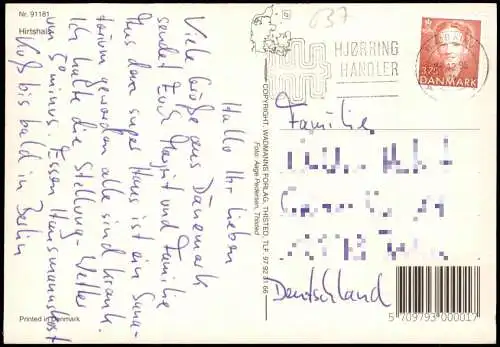 Nr. 91181
Hirtshals
Hallo Ihr Lieben
Viele Grüße aus Dänemark
sendet Euch Margit und Familie
Aus dem super Haus ist ein Sana-
torium geworden alle sind krank.
Ich halte die Stellung. Wetter
um 5° minus. Essen Hausmannskost
Kuß bis bald in Berlin
Printed in Denmark
COPYRIGHT: WADMANNS FORLAG, THISTED, TLF. 97 92 31 66
Foto: Aage Pedersen, Thisted
637
HJØRRING
HANDLER
3.75
DANMARK
Familie
Deutschland
5 709793 000017